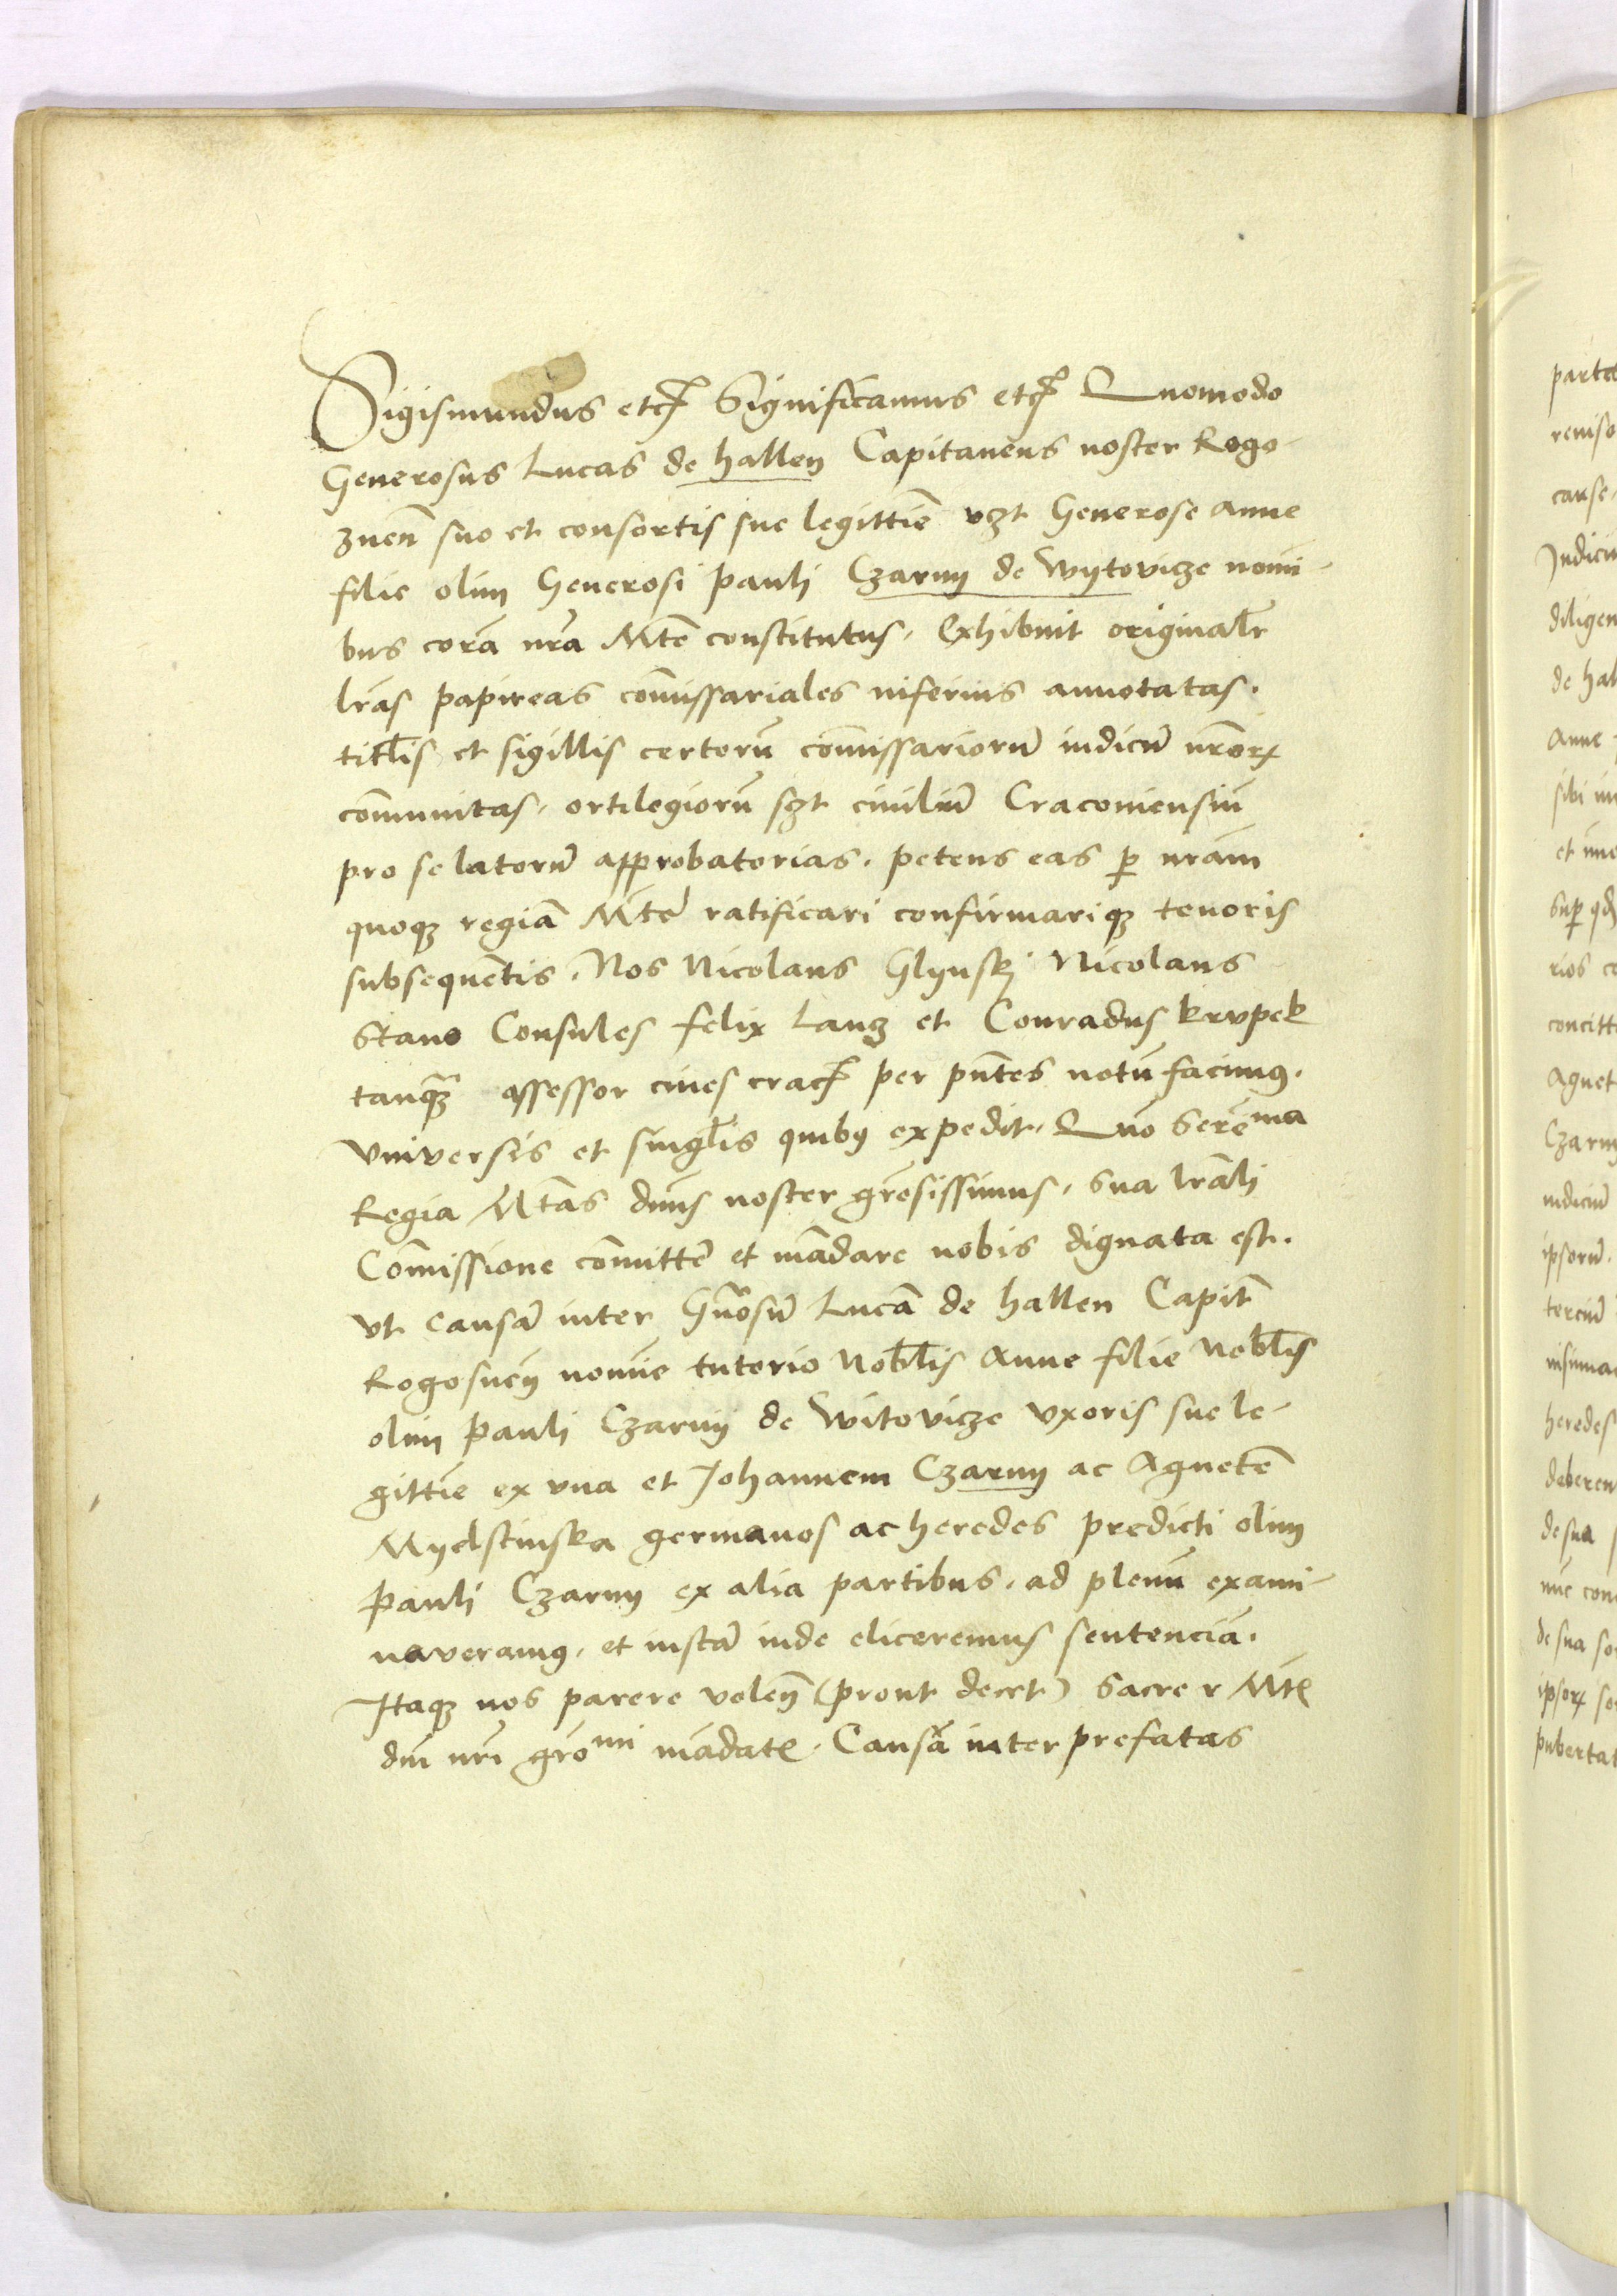 Sigismundus etcꝭ Significamus etcꝭ Quomodo
Generosus Lucas de hallen Capitaneus noster Rogo-
zneñ suo et consortis sue legittiē vzt Generose Anne
filie olim Generosi Pauli Czarny de Wytovicze nomi-
bus corā nrā Mtē constitutus, Exhibuit originalr̄
lrās papireas com̄issariales inferius annotatas.
titl̄is et sigillis certorū com̄issariorū iudicū nrōrꝝ
com̄unitas, ortilegiorū szt civiliū Cracoviensiū
pro se latorū approbatorias. petens eas ꝑ nrām
quoqꝫ regiā Mtē ratificari confirmariqꝫ tenoris
subsequētis. Nos Nicolaus Glynskj Nicolaus
Stano Consules felix Lang et Conradus krupek
tanqꝫ assessor cives cracꝭ per pn̄tes notū facimꝰ.
Vniversis et singl̄is quibꝰ expedit. Quō Serēma
Regia Mtās dn̄us noster grōsissimus, sua lrāli
Com̄issione com̄ittē et mādare nobis dignata est.
vt causā inter Gn̄osū Lucā de hallen Capit̄
Rogosneñ nomīe tutorio Nobl̄is Anne filie Nobl̄is
olim Pauli Czarny de Witovicze vxoris sue le-
gittīe ex vna et Johannem Czarny ac Agnetē
Myelstinska germanos ac heredes predicti olim
Pauli Czarny ex alia partibus. ad plenū exami-
naveramꝰ, et iustā inde eliceremus sentenciā.
Itaqꝫ nos parere voleñ (prout decet) Sacre r Mtꝭ
dn̄i nr̄i grōmi mādatꝭ. Causā inter prefatas
parte
reviso
cause
Judicu
diligen
de hal
Anne
sibi
et
Sup qđ
rios
concitt
Agnet
Czarny
iudiciū
ipsorū.
terciū
insinua
heredes
deberen
de sua
con
de sua so
ipsorꝝ so
pubertat